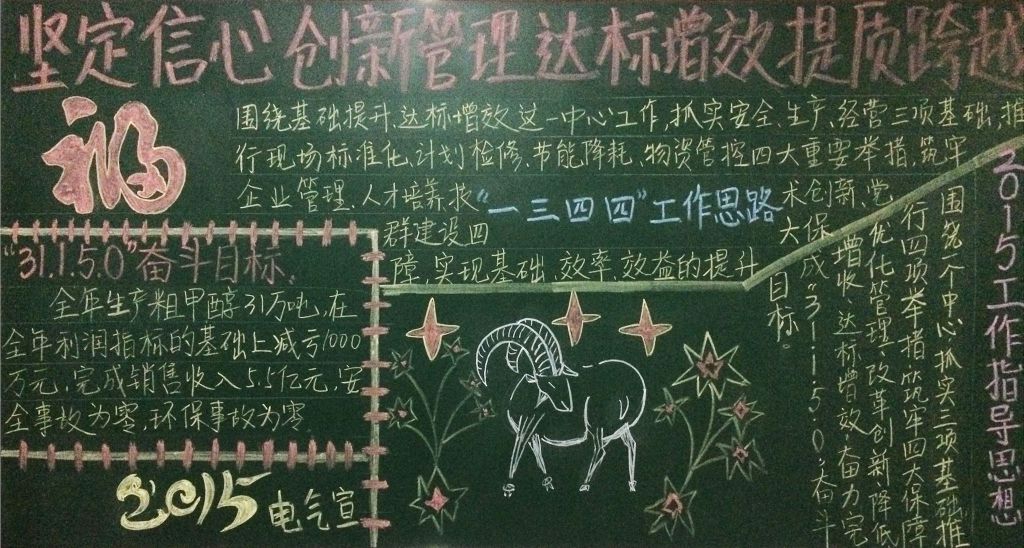 坚定信心创新管理达标增效提质跨越
福
围绕基础提升、达标增效这一中心工作,抓实安全、生产、经营三项基础,推
行现场标准化、计划检修、节能降耗、物资管控四大重要举措,筑牢
企业管理、人才培养、技
术创新、党
群建设四
大保
障,实现基础、效率、效益的提升
"一三四四"工作思路
"31.1.5.0"奋斗目标
全年生产粗甲醇31万吨,在
全年利润指标的基础上减亏1000
万元,完成销售收入5.5亿元,安
全事故为零,环保事故为零
2015电气宣
2015工作指导思想
围绕一个中心、抓实三项基础、推
行四项举措、筑牢四大保障
优化管理、改革创新、降低
增收、达标增效、奋力完
成"31.1.5.0"奋斗
目标。